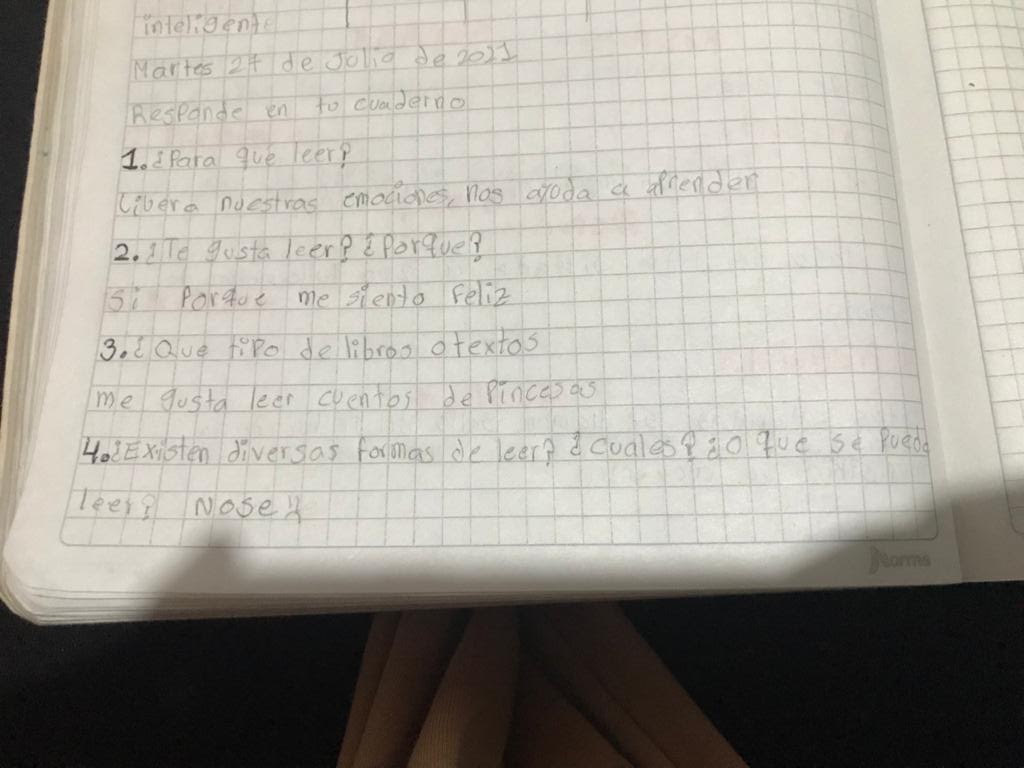 inteligente
Martes 27 de Julio de 2021
Responde en tu cuaderno
1. ¿Para que leer?
Libera nuestras emociones, nos ayuda a aprender
2. ¿Te gusta leer? ¿Porque?
Si Porque me siento feliz
3. ¿Que tipo de libros o textos
me gusta leer cuentos de Pincesas
4. ¿Existen diversas formas de leer? ¿Cuales? ¿O que se puede
leer? Nose
norma